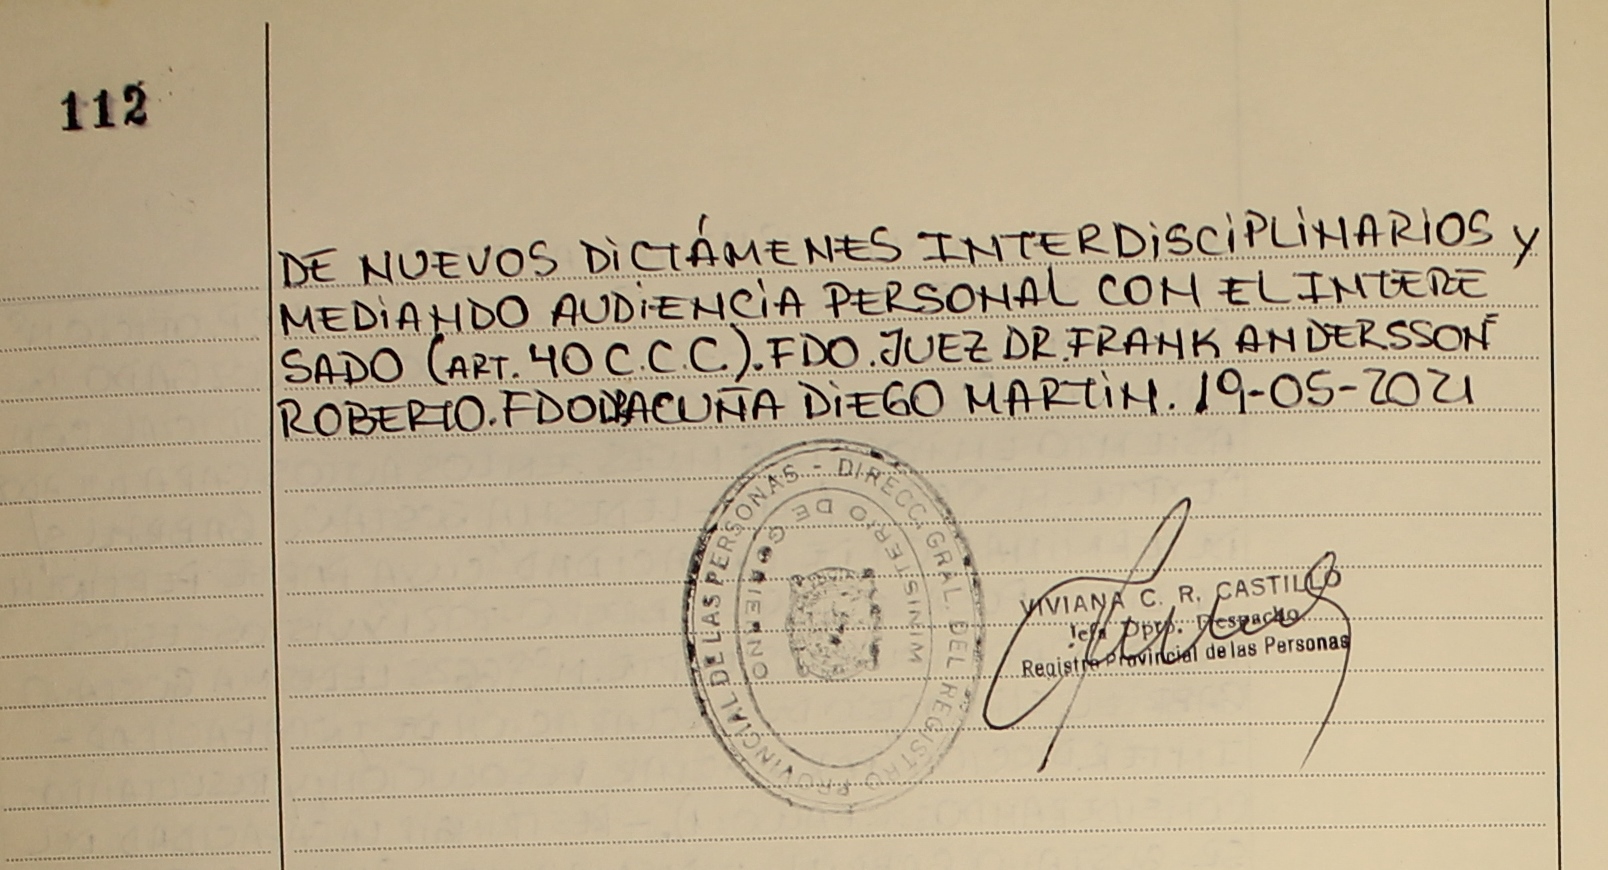 112
DE NUEVOS DICTÁMENES INTERDISCIPLINARIOS Y
MEDIANDO AUDIENCIA PERSONAL CON EL INTERE
SADO (ART. 40 C.C.C.). FDO. JUEZ DR. FRANK ANDERSSON
ROBERTO. FDO ACUÑA DIEGO MARTIN. 19-05-2021
DIRECC. GRAL. DEL REGISTRO PROVINCIAL DE LAS PERSONAS -
MINISTERIO DE GOBIERNO
VIVIANA C. R. CASTILLO
Jefa Dpto. Despacho
Registro Provincial de las Personas